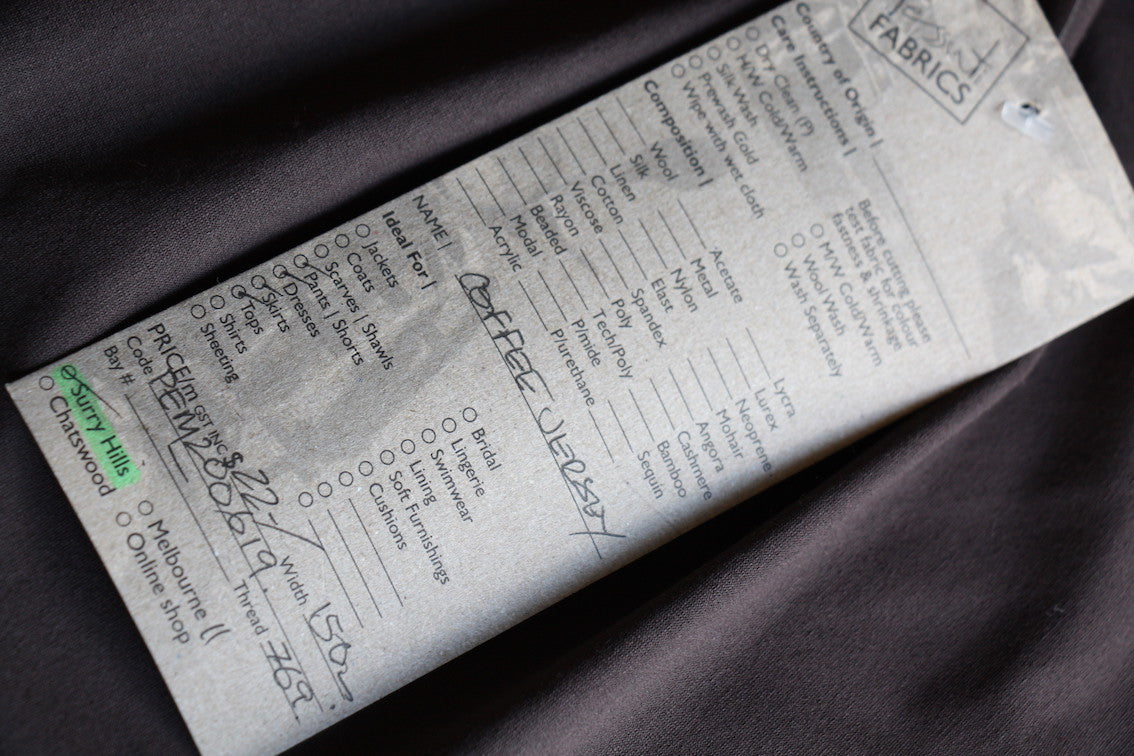 Tessuti
FABRICS
Country of Origin |
Care Instructions |
Dry Clean (P)
H/W Cold/Warm
Silk Wash
Prewash Cold
Wipe with wet cloth
Before cutting please
test fabric for colour
fastness & shrinkage
M/W Cold/Warm
Wool Wash
Wash Separately
Composition |
Wool Acetate Lycra
Silk Metal Lurex
Linen Nylon Neoprene
Cotton Elast Mohair
Viscose Spandex Angora
Rayon Poly Cashmere
Beaded Tech/Poly Bamboo
Modal P/mide Sequin
Acrylic P/urethane
NAME | COFFEE JERSEY
Ideal For |
Jackets Bridal
Coats Lingerie
Scarves | Shawls Swimwear
Pants | Shorts Lining
Dresses Soft Furnishings
Skirts Cushions
Tops
Shirts
Sheeting
PRICE/m GST INC $22-/ Width 150
Code PEM200619. Thread 769.
Bay #
Surry Hills Melbourne
Chatswood Online shop